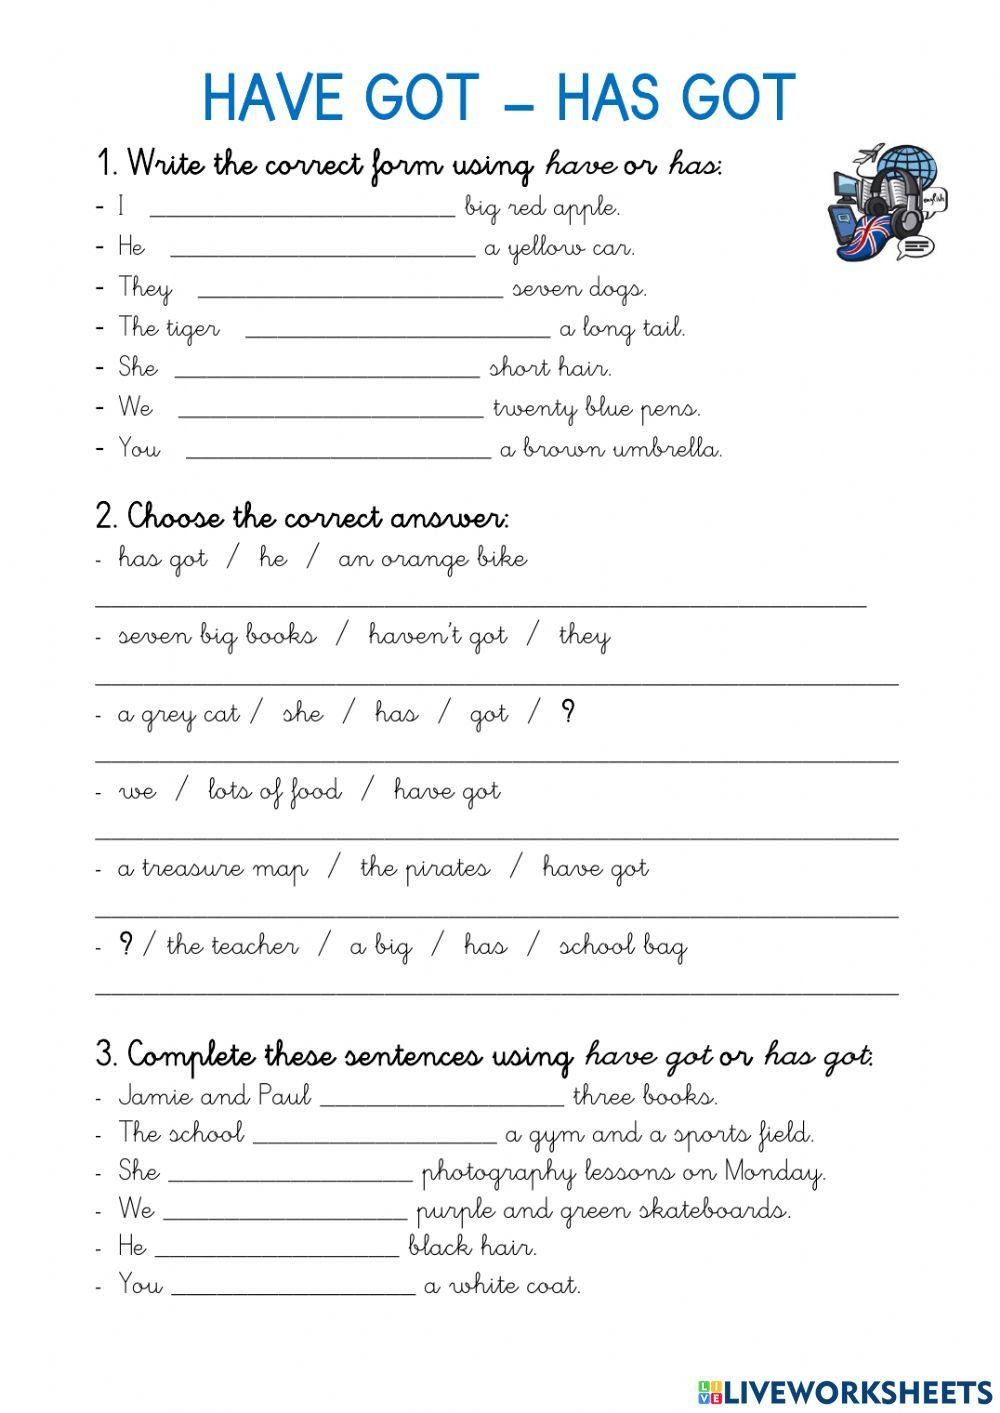 HAVE GOT – HAS GOT
1. Write the correct form using have or has:
- I ____________________ big red apple.
- He ____________________ a yellow car.
- They ____________________ seven dogs.
- The tiger ____________________ a long tail.
- She ____________________ short hair.
- We ____________________ twenty blue pens.
- You ____________________ a brown umbrella.
english
2. Choose the correct answer:
- has got / he / an orange bike
- seven big books / haven't got / they
- a grey cat / she / has / got / ?
- we / lots of food / have got
- a treasure map / the pirates / have got
- ? / the teacher / a big / has / school bag
3. Complete these sentences using have got or has got:
- Jamie and Paul ________________ three books.
- The school ________________ a gym and a sports field.
- She ________________ photography lessons on Monday.
- We ________________ purple and green skateboards.
- He ________________ black hair.
- You ________________ a white coat.
LIVE LIVEWORKSHEETS